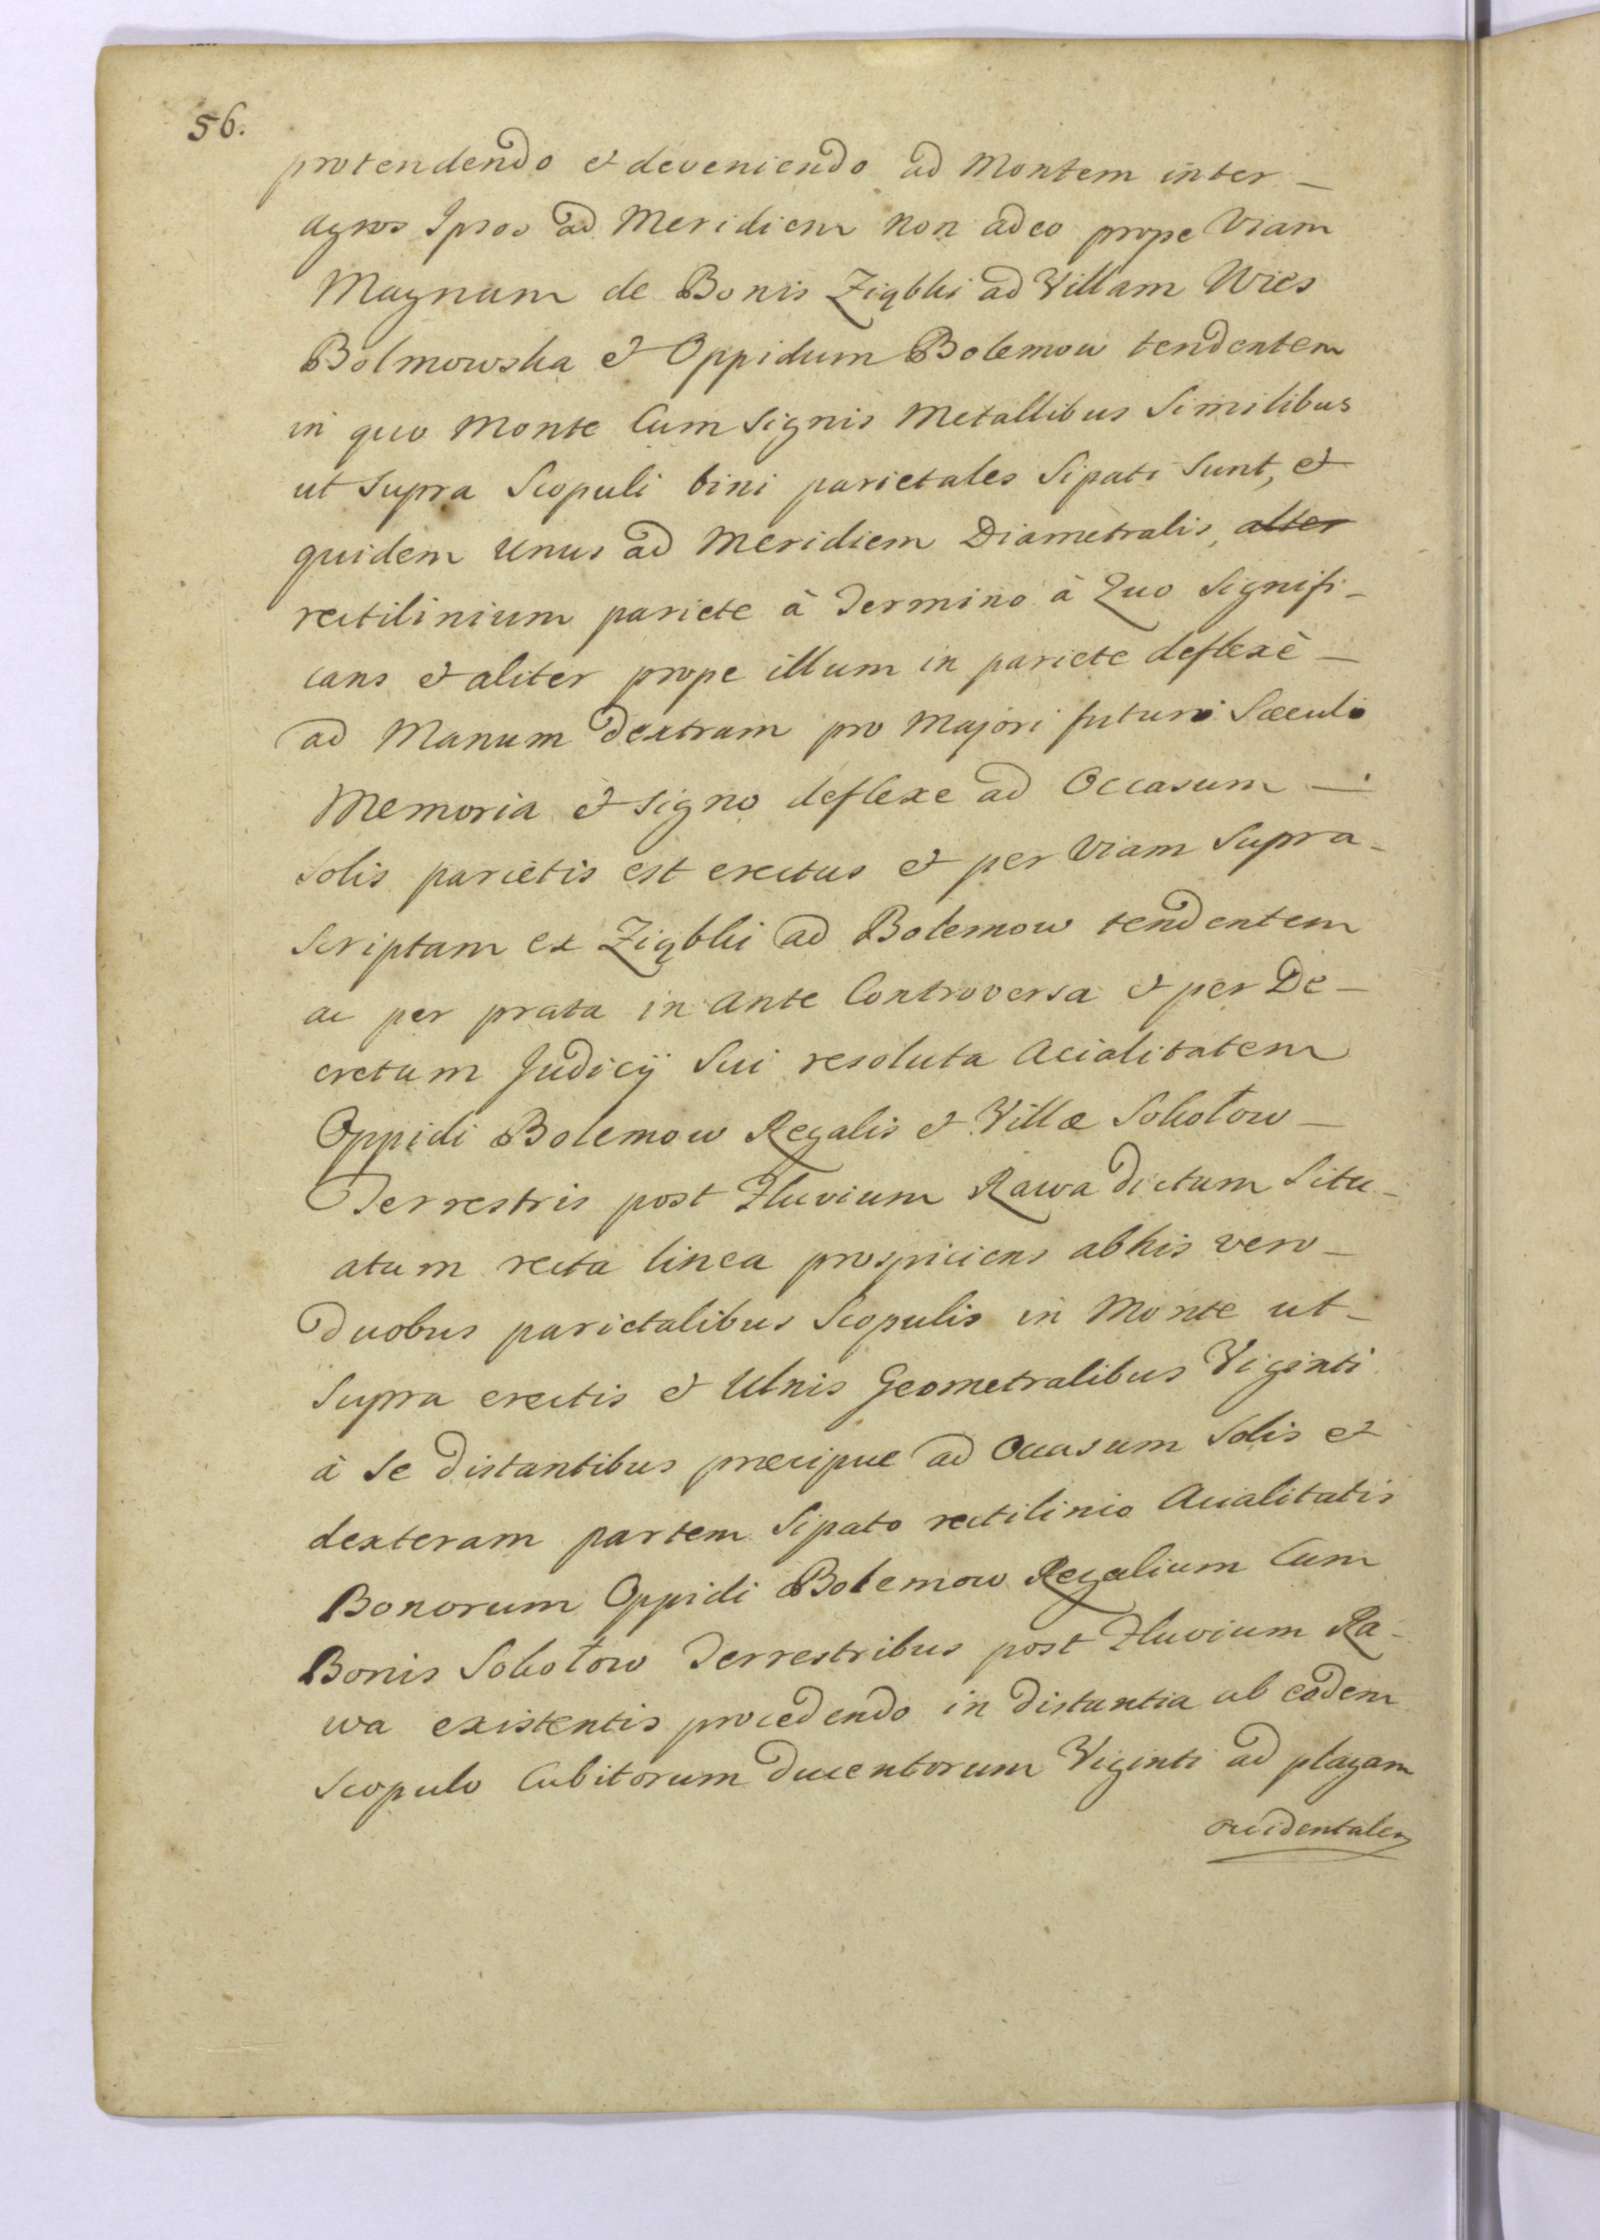 56.
protendendo et deveniendo ad Montem inter –
agros Ipsos ad Meridiem non adeo prope Viam
Magnam de Bonis Ziąbki ad Villam Wies
Bolmowska et Oppidum Bolemow tendentem
in quo Monte Cum Signis Metallibus Similibus
ut Supra Scopuli bini parietales Sipati Sunt, et
quidem unus ad Meridiem Diametralis, alter
rectilinium pariete à Termino à Quo Signifi-
cans et aliter prope illum in pariete deflexè –
ad Manum dextram pro Majori futuro Sæculo
Memoria et signo deflexe ad Occasum –
Solis parietis est erectus et per Viam Supra-
scriptam ex Ziąbki ad Bolemow tendentem
ac per prata in ante Controversa et per De-
cretum Judicij Sui resoluta Acialitatem
Oppidi Bolemow Regalis et Villæ Sokołow –
Terrestris post Fluvium Rawa dictum Situ-
atum recta linea prospiciens ab his vero –
duobus parietalibus Scopulis in Monte ut –
Supra erectis et Ulnis Geometralibus Viginti
à Se distantibus præcipue ad Occasum Solis et
dexteram partem Sipato rectilinio Acialitatis
Bonorum Oppidi Bolemow Regalium Cum
Bonis Sokołow Terrestribus post Fluvium Ra-
wa existentis procedendo in distantia ab eodem
Scopulo Cubitorum ducentorum Viginti ad plagam
occidentalem